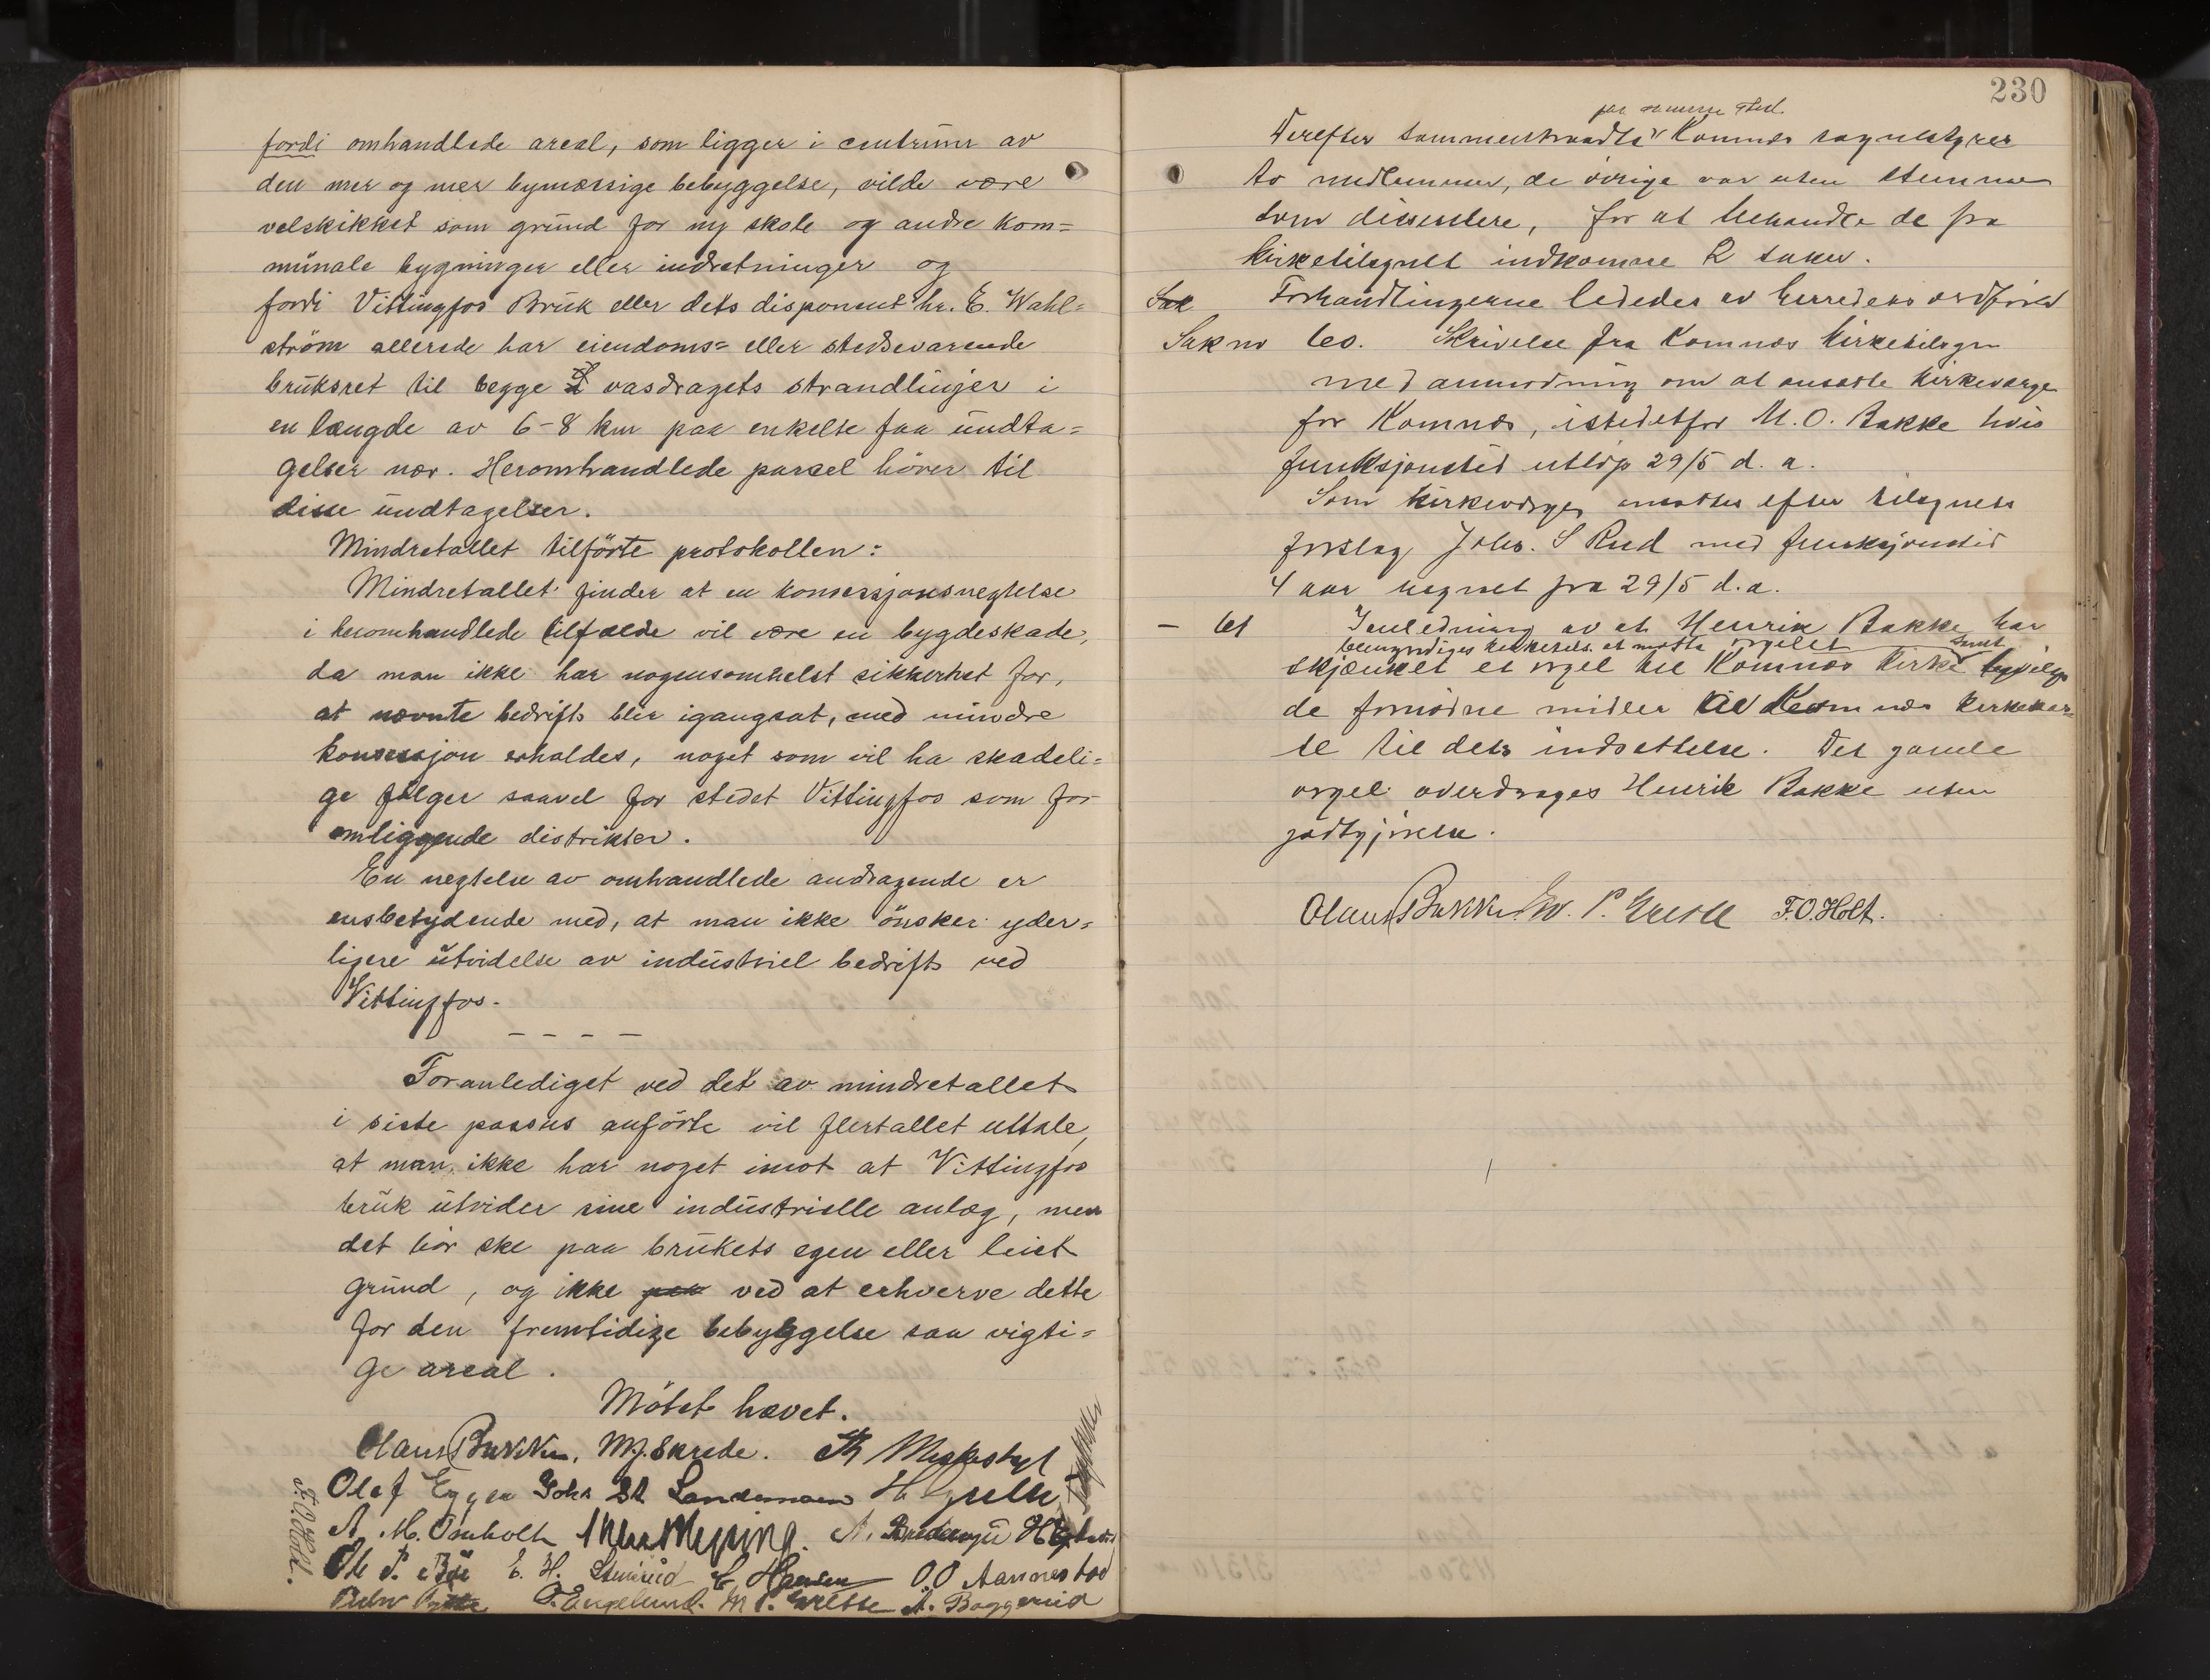 fordi omhandlede areal, som ligger i centrum av
den mer og mer bymæssige bebyggelse, vilde være
velskikket som grund for ny skole og andre kom=
munale bygninger eller indretninger og
fordi Vittingfos Bruk eller dets disponent hr. E. Wahl=
ström allerede har eiendoms= eller stedsevarende
bruksret til begge vasdragets strandlinjer i
en længde av 6-8 km paa enkelte faa undta=
gelser nær. Heromhandlede parsel hörer til
disse undtagelser.
Mindretallet tilförte protokollen:
Mindretallet finder at en konsessjonsnegtelse
i heromhandlede tilfælde vil være en bygdeskade,
da man ikke har nogensomhelst sikkerhet for,
at nævnte bedrift blir igangsat, med mindre
konsessjon erholdes, noget som vil ha skadeli=
ge fölger saavel for stedet Vittingfos som for
omliggende distrikter.
En negtelse av omhandlede andragende er
ensbetydende med, at man ikke önsker yder=
ligere utvidelse av industriel bedrift ved
Vittingfos.
- - - -
Foranlediget ved det av mindretallet
i siste passus anförte vil flertallet uttale,
at man ikke har noget imot at Vittingfos
bruk utvider sine industrielle anlæg, men
det bör ske paa brukets egen eller leiet
grund, og ikke ved at erhverve dette
for den fremtidige bebyggelse saa vigti=
ge areal.
Mötet hævet.
Olaus Bakken. M.J. Skrede. Th
Olaf Johs H
A. M. Omholt A.
F.O. Holt.
Ole P. Bøe E. H. Stenrud O.O Aannestad
P. Engelund. M P. Grette A. Baggerud
230
paa samme sted
Derefter sammentraadte Komnes sognestyres
to medlemmer, de övrige var uten stemme
som dissentere, for at behandle de fra
kirketilsynet indkomne 2 saker.
Sak Forhandlingerne lededes av herredets ordförer
Sak no 60. Skrivelse fra Komnes kirketilsyn
med anmodning om at ansætte kirkeverge
for Komnes, istedetfor M. O. Bakke hvis
funksjonstid utlöp 29/5 d. a.
Som kirkeverge ansættes efter tilsynets
forslag Johs. S Rud med funksjonstid
4 aar regnet fra 29/5 d.a.
- 61 I anledning av at Henrik Bakke har
bemyndiges kirketils. at motta orgelet samt
skjænket et orgel til Komnes kirke
de fornödne midler til Komnes kirkekas=
se til dets indsettelse. Det gamle
orgel overdrages Henrik Bakke uten
godtgjörelse.
Olaus Bakken M. P. Grette F.O. Holt.